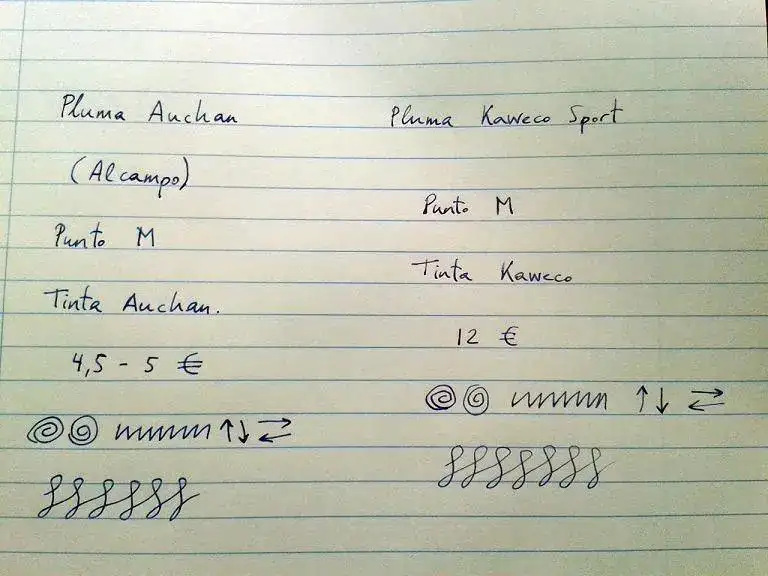 Pluma Auchan
(Alcampo)
Punto M
Tinta Auchan.
4,5 - 5 €
Pluma Kaweco Sport
Punto M
Tinta Kaweco
12 €